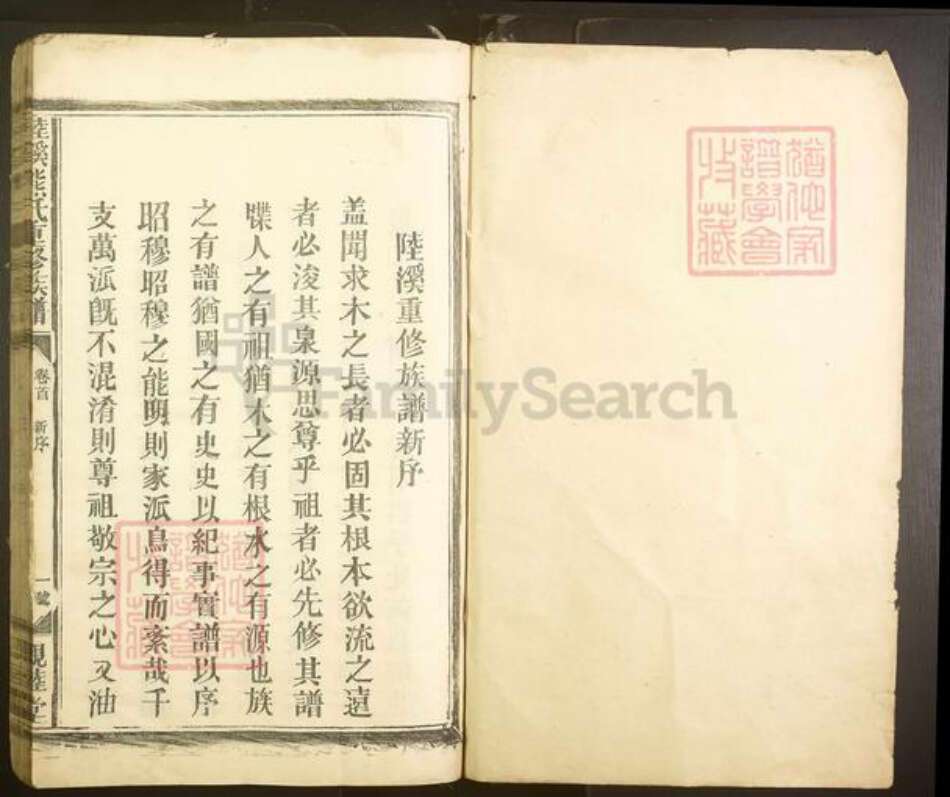 陸溪重修族譜新序
盖聞求木之長者必固其根本欲流之遠
者必浚其泉源思尊乎祖者必先修其譜
牒人之有祖猶木之有根水之有源也族
之有譜猶國之有史史以紀事實譜以序
昭穆昭穆之能明則家派烏得而紊哉千
支萬派旣不混淆則尊祖敬宗之心又油
陸溪熊氏重修族譜
卷首
新序
一號
親睦堂
譜學會
收藏
FamilySearch